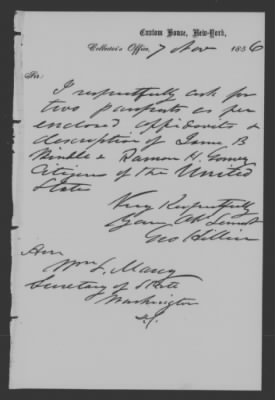 Custom House, New-York,
Collector's Office, 7 Nov 1856
Sir:
I respectfully ask for
two passports as per
enclosed affidavits &
description of
& Ramon H. Gomez
Citizens of the United
State
Very Respectfully
Your Obt Servt
Geo
Hon
Wm L. Marcy
Secretary of State
Washington